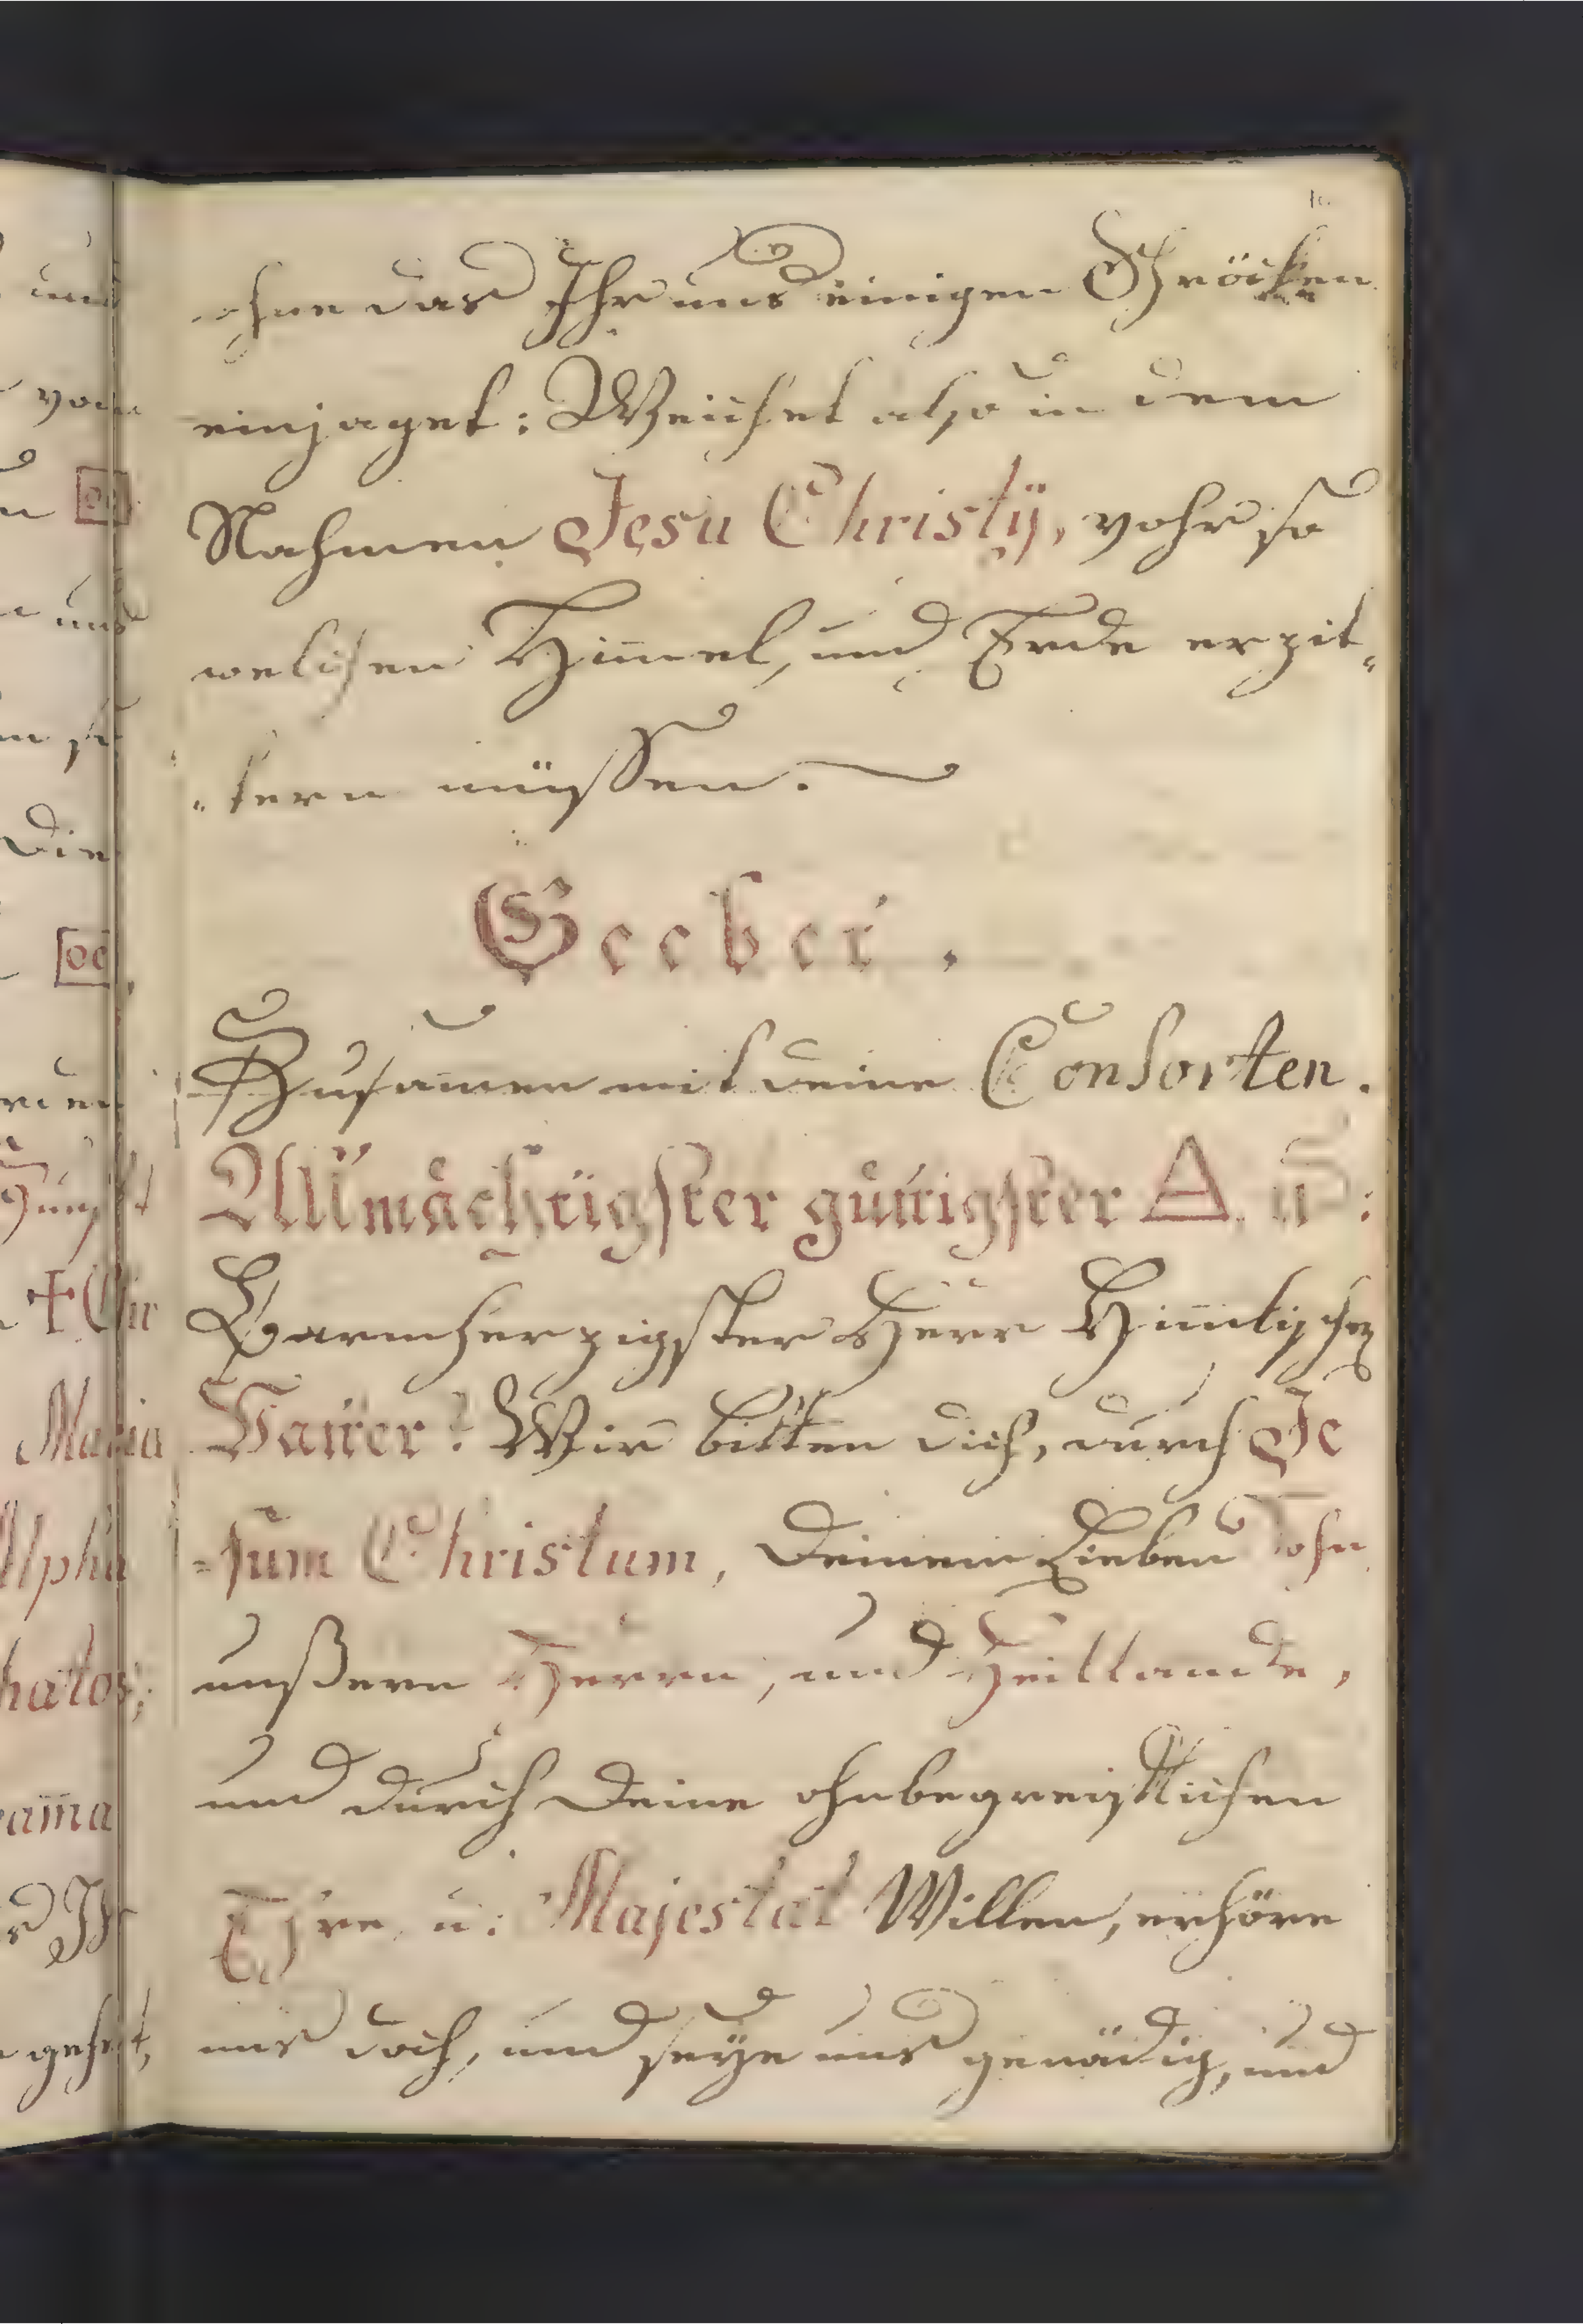 ohne das Ihr uns einigen Schröcken
einjaget: Weichet also in dem
Nahmen Jesu Christÿ, vohr so
welchen Him̅el, und Erde erzit„
„tern müssen.
Geebet.
Zusam̅en mit deine Consorten.
Allmächtigster güttigster △ u:
Barmherzigster Herr Him̅lischer
Vatter: Wir bitten dich, durch Je
=sum Christum, deinem Lieben Sohn
unßern Herrn, und Heillande,
und durch deine ohnbegreiflichen
Ehre u: Majestät Willen, erhöre
uns doch, und seÿe uns genädig, und